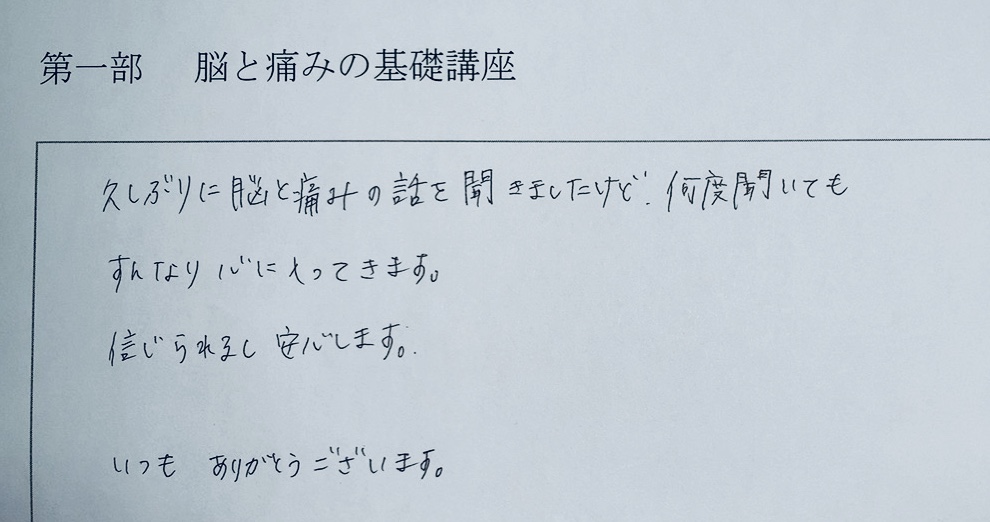 第一部 脳と痛みの基礎講座
久しぶりに脳と痛みの話を聞きましたけど、何度聞いても
すんなり心に入ってきます。
信じられるし安心します。
いつも ありがとうございます。